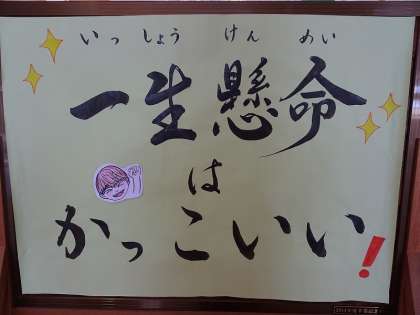 いっしょう けん めい
一生懸命
は
かっこいい!